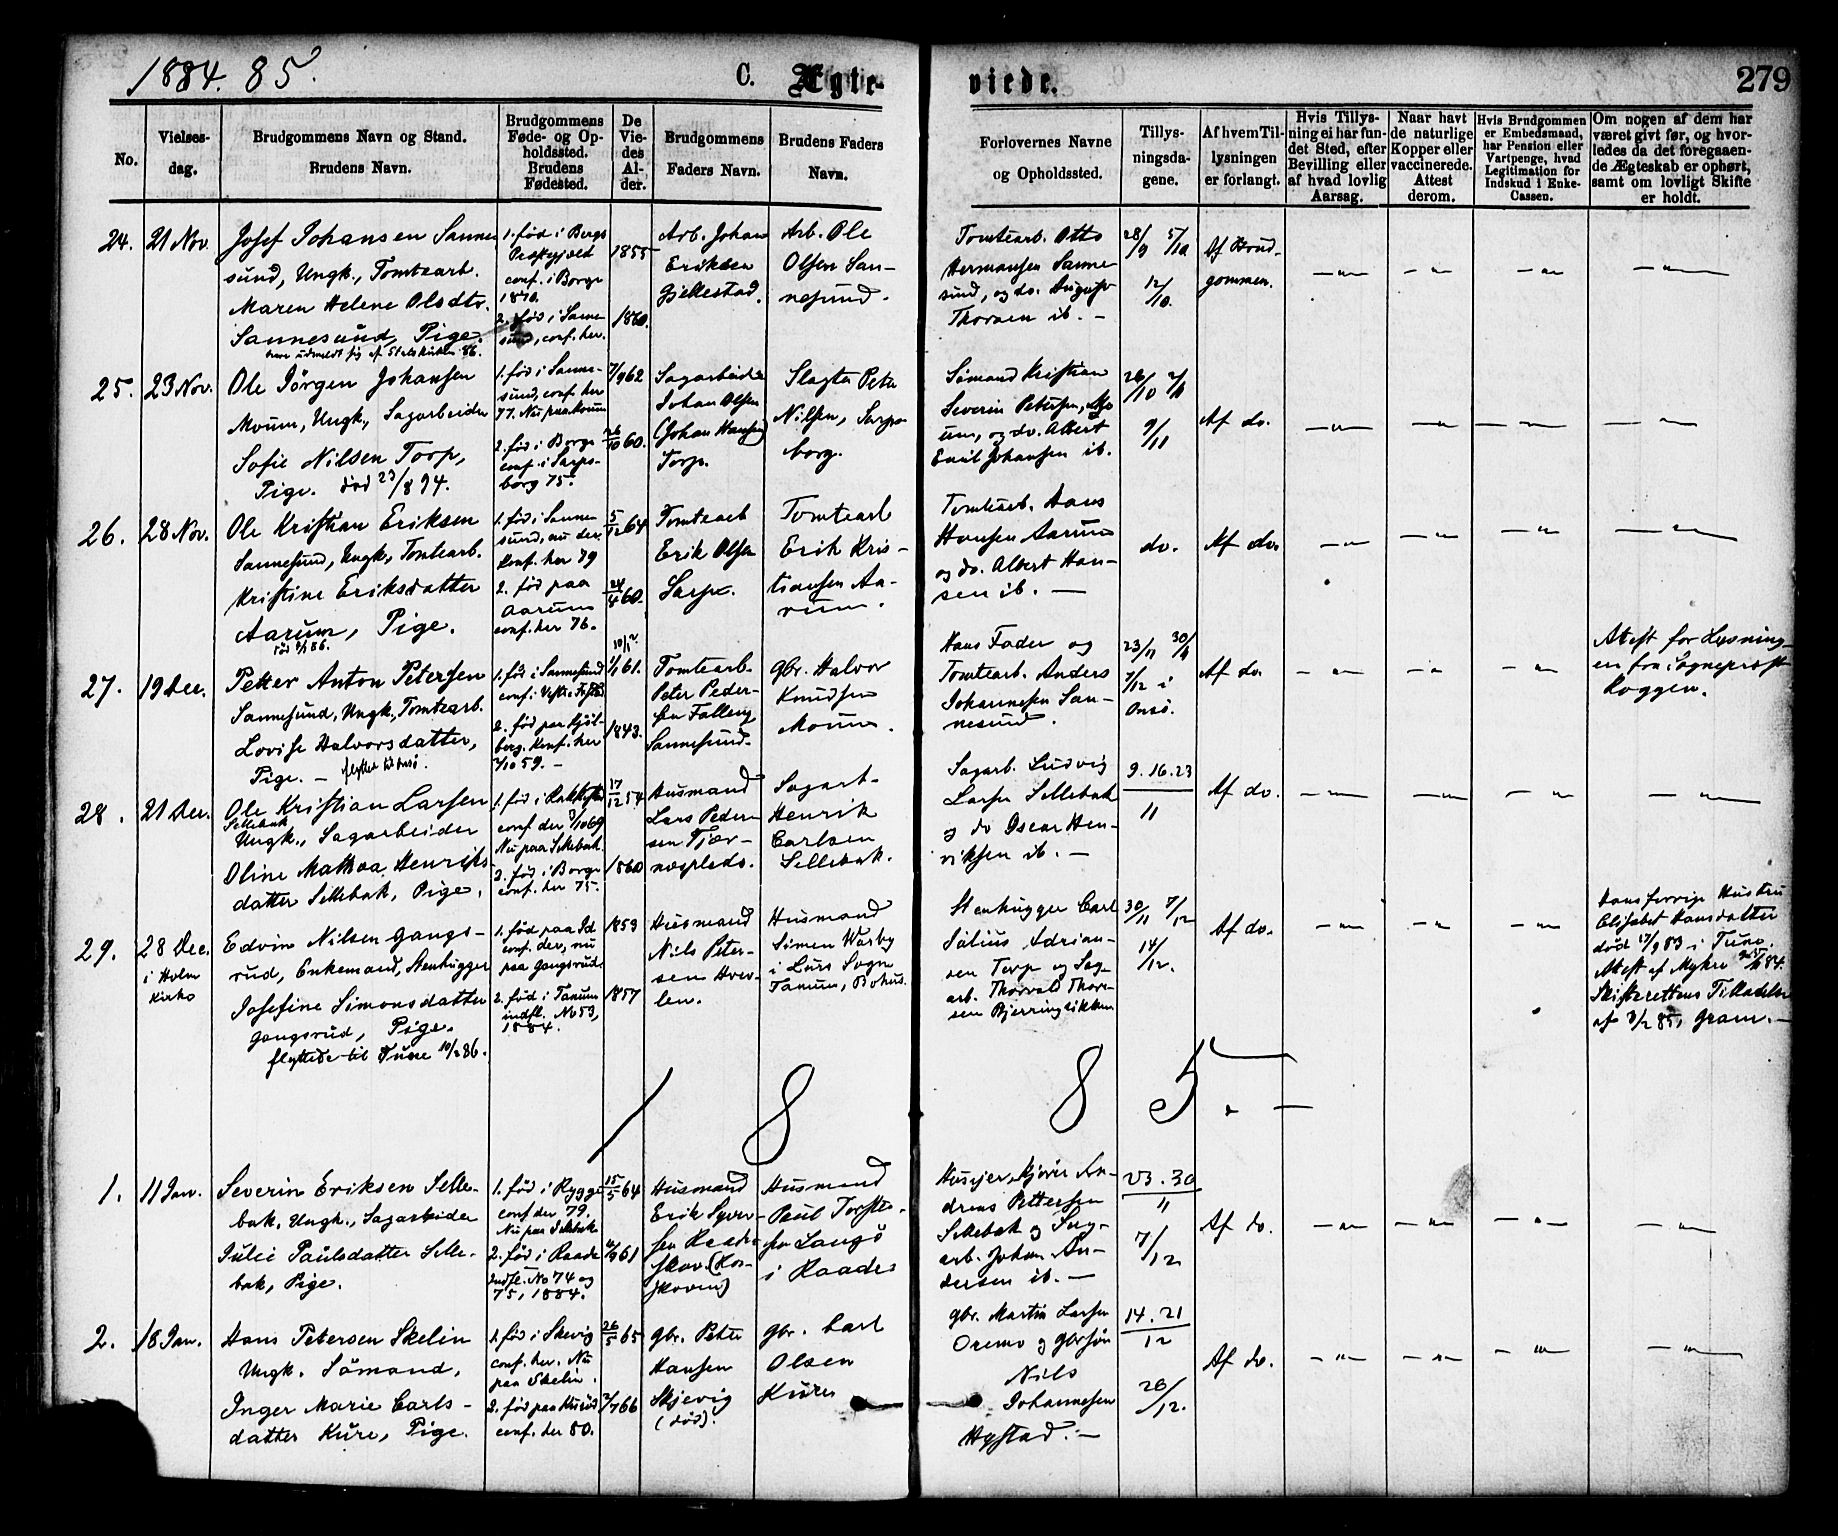 1884. 85.
C. Ægte-
viede.
279
No.
Vielses-
dag.
Brudgommens Navn og Stand.
Brudens Navn.
Brudgommens
Føde- og Op-
holdssted.
Brudens
Fødested.
De
Vie-
des
Al-
der.
Brudgommens
Faders Navn.
Brudens Faders
Navn.
Forlovernes Navne
og Opholdssted.
Tillys-
ningsda-
gene.
Af hvem Til-
lysningen
er forlangt.
Hvis Tillys-
ning ei har fun-
det Sted, efter
Bevilling eller
af hvad lovlig
Aarsag.
Naar havt
de naturlige
Kopper eller
vaccinerede.
Attest
derom.
Hvis Brudgommen
er Embedsmand,
har Pension eller
Vartpenge, hvad
Legitimation for
Indskud i Enke-
Cassen.
Om nogen af dem har
været givt før, og hvor-
ledes da det foregaaen-
de Ægteskab er ophørt,
samt om lovligt Skifte
er holdt.
24.
21 Nov.
Josef Johansen Sanne
sund, Ungk., Tomtearb.
Maren Helene Olsdtr.
Sannesund, Pige.
1. fød i Bergs
Præstgjæld
conf. i Borge
1870.
2. fød i Sanne
sund, conf. her.
1855
1860.
Arb. Johan
Eriksen
Gjellestad.
Arb. Ole
Olsen San-
nesund.
Tomtearb. Otto
Hermansen Sanne-
sund, og do. August
Thorsen ib. -
28/9 5/10
12/10.
Af Brud-
gommen.
25.
23 Nov.
Ole Jörgen Johansen
Moum, Ungk., Sagarbeider
Sofie Nilsen Torp,
Pige. död 23/8 94.
1. fød i Sanne-
sund, conf. her
77. Nu paa Moum
2. fød i Borge
conf. i Sarps-
borg 75.
7/9 62
26/10 60.
Sagarbeider
Johan Olsen
(Johan Hansen)
Torp.
Slagter Peter
Nilsen, Sarps-
borg.
Sömand Kristian
Severin Petersen, Mo
um, og do. Albert
Emil Johansen ib.
26/10 2/11
9/11
Af do.
26.
28 Nov.
Ole Kristian Eriksen
Sannesund, Ungk., Tomtearb.
Kristine Eriksdatter
Aarum, Pige.
1. fød i Sanne
sund, nu der.
Konf. her 79
2. fød paa
Aarum
conf. her 76.
5/12 64
24/4 60.
Tomtearb
Erik Olsen
Sarp.
Tomtearb
Erik Kris-
tiansen Aa-
rum.
Tomtearb. Hans
Hansen Aarum
og do. Albert Han-
sen ib. -
do.
Af do.
27.
19 Dec.
Petter Anton Petersen
Sannesund, Ungk., Tomtearb.
Lovise Halvorsdatter,
Pige. -
1. fød i Sannesund
conf.
2. fød paa Kjöl-
berg. Konf. her
59. -
1/1 61.
1843.
Tomtearb.
Peter Peder-
sen
Sannesund.
Gbr. Halvor
Knudsen
Moum.
Hans Fader og
Tomtearb. Anders
Johannesen San-
nesund.
23/11 30/11
7/12 i
Onsö.
Af do
Attest for Lysning-
en fra Sognepræst
Roggen.
28.
21 Dec.
Ole Kristian Larsen
Sellebak
Ungk., Sagarbeider
Oline Mathea Henriks-
datter Sellebak, Pige.
1. fød i Rakkestad
conf. der 3/10 69
Nu paa Sellebak.
2. fød i Borge
conf. her 75.
17/12 54
1860
Husmand
Lars Peder
sen Tjær-
næsplads.
Sagarb.
Henrik
Carlsen
Sellebak.
Sagarb. Ludvig
Larsen Sellebak
og do Oscar Hen-
riksen ib. -
9. 16. 23
11
Af do.
29.
28 Dec.
i Holm
Kirke
Edvin Nilsen Gangs-
rud, Enkemand, Stenhugger
Josefine Simonsdatter
Gangsrud, Pige.
flyttede til Tune 10/2 86.
1. fød paa Id
conf. der, nu
paa Gangsrud
2. fød i Tanum
indfl. No 53,
1884.
1859
1857
Husmand
Nils Peter-
sen Hver-
len.
Husmand
Simen Warby
i Lurs Sogn
Tanum, Bohus.
Stenhugger Carl
Julius Adrian-
sen Torp og Sag-
arb. Thorvald Thor-
sen
30/11 7/12
14/12.
Af do.
Hans forrige Hustru
Elisabet Hansdatter
död 17/9 83 i Tune.
Attest af
Skifterettens Tilladelse
af 3/2 85, Gram.
1 8 8 5
1.
11 Jan.
Severin Eriksen Selle-
bak, Ungk., Sagarbeider
Julie Paulsdatter Selle-
bak, Pige.
1. fød i Rygge
conf der 79.
Nu paa Sellebak
2. fød i Raade
Indfl. No 74 og
75, 1884.
15/5 64
4/9 61
Husmand
Erik Syver-
sen Raade
skov (Kor-
skoven)
Husmand
Paul Torste-
sen Langö
i Raade
Huseier Björn An-
dreas Pettersen
Sellebak og Sag-
arb. Johan An-
dersen ib. -
23. 30
11
7/12
Af do.
2.
18 Jan.
Hans Petersen Skelin
Ungk. Sömand,
Inger Marie Carls-
datter Kure, Pige.
1. fød i Skevig
conf. her. Nu
paa Skelin.
2. fød paa Kure
conf. her 80.
26/5 65
2/7 66
Gbr. Peter
Hansen
Skjevig
(död).
Gbr. Carl
Olsen
Kure
Gbr. Martin Larsen
Oremo og Gbrsön
Nils
Johannesen
Hystad. -
14. 21
12
26/12.
Af do.